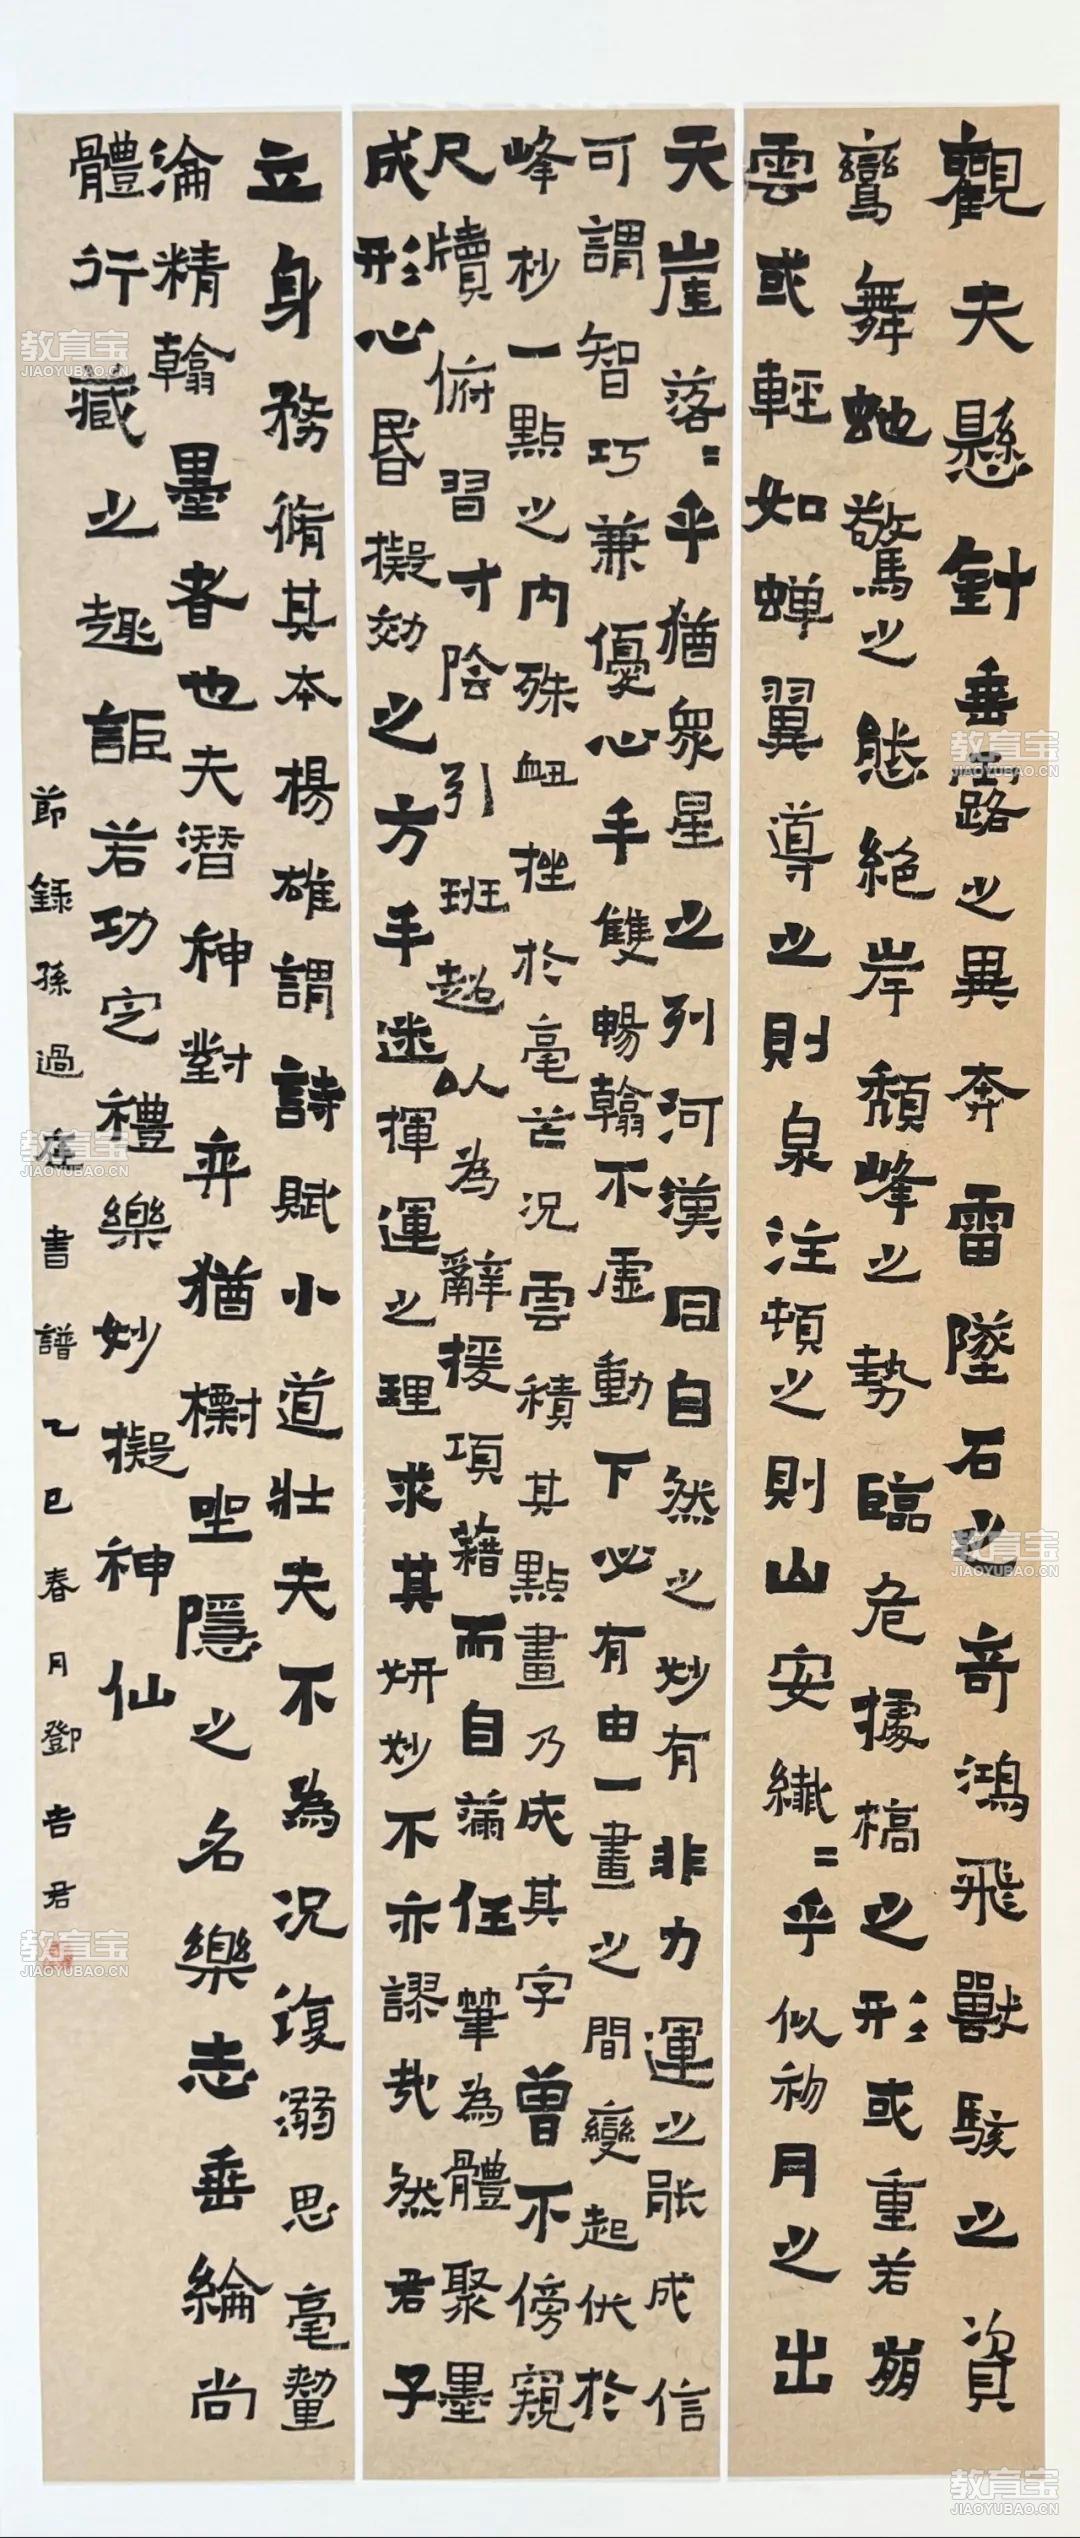 觀夫懸針垂露之異奔雷墜石之奇鴻飛獸駭之資
鸞舞蛇驚之態絕岸頹峰之勢臨危據槁之形或重若崩
雲或輕如蟬翼導之則泉注頓之則山安纖〻乎似初月之出
天崖落〻乎猶眾星之列河漢同自然之妙有非力運之能成信
可謂智巧兼優心手雙暢翰不虛動下必有由一畫之間變起伏於
峰杪一點之內殊衄挫於毫芒況雲積其點畫乃成其字曾不傍窺
尺牘俯習寸陰引班超以為辭援項籍而自滿任筆為體聚墨
成形心昏擬效之方手迷揮運之理求其妍妙不亦謬哉然君子
立身務脩其本楊雄謂詩賦小道壯夫不為況復溺思毫釐
淪精翰墨者也夫潛神對弈猶標坐隱之名樂志垂綸尚
體行藏之趣詎若功定禮樂妙擬神仙
節錄孫過庭書譜乙巳春月鄧吉君
教育宝
JIAOYUBAO.CN
教育宝
JIAOYUBAO.CN
教育宝
JIAOYUBAO.CN
教育宝
JIAOYUBAO.CN
教育宝
JIAOYUBAO.CN
教育宝
JIAOYUBAO.CN